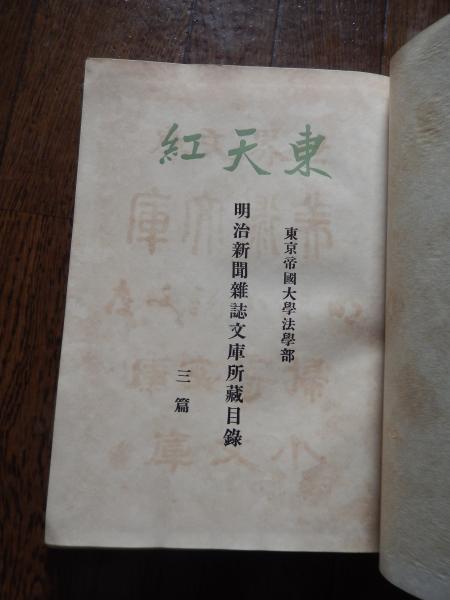 東天紅
東京帝國大學法學部
明治新聞雜誌文庫所藏目錄
三篇